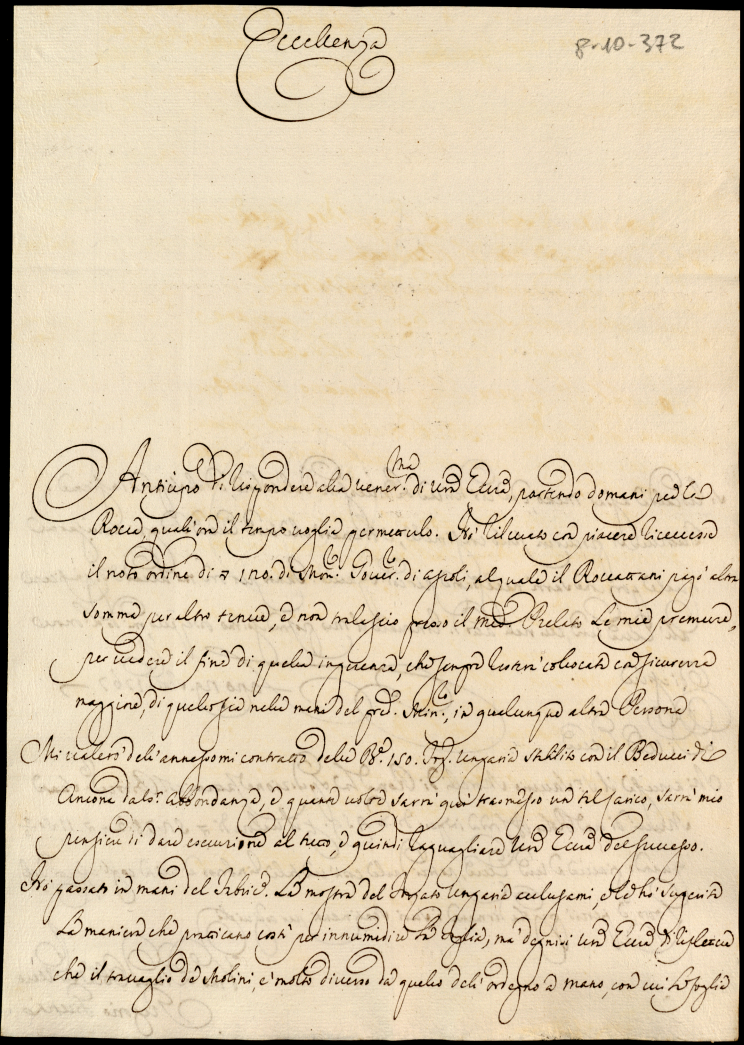 Eccellenza
8-10-372
Anticipo di rispondere alla vener.ma di Vra Eccza, partendo domani per le
Rocce, quali ora il tempo voglia permetterlo. Hò rilevato con piacere
il noto ordine di 120. di Mon.r Gover.re di Ascoli, al quale il Roccattani pagò altra
somma per altro tenue, e non tralascio presso il med.o Prelato le mie premure,
per vedere il fine di quella ingerenza, che sempre resterà collocata con sicurezza
maggiore, di quello sia nelle mani del pred.o in qualunque altra Persona
Mi valerò dell'annessomi contratto delle 150. Ungaria stabilito con il Beducci di
Ancona dalo.r Abbondanza, e quante volte sarrà quà trasmesso un tal carico, sarrà mio
pensiere di dare esecuzione al tutto, e quindi ragguagliare Vra Eccza del successo.
Hò passato in mani del La mostra del Ungaria acclusami, e le hò suggerita
La maniera che praticano costì per innumidire La foglia, ma degnisi Vra Eccza di riflettere
che il travaglio de Molini, è molto diverso da quello dell'ordegno a mano, con cui La foglia